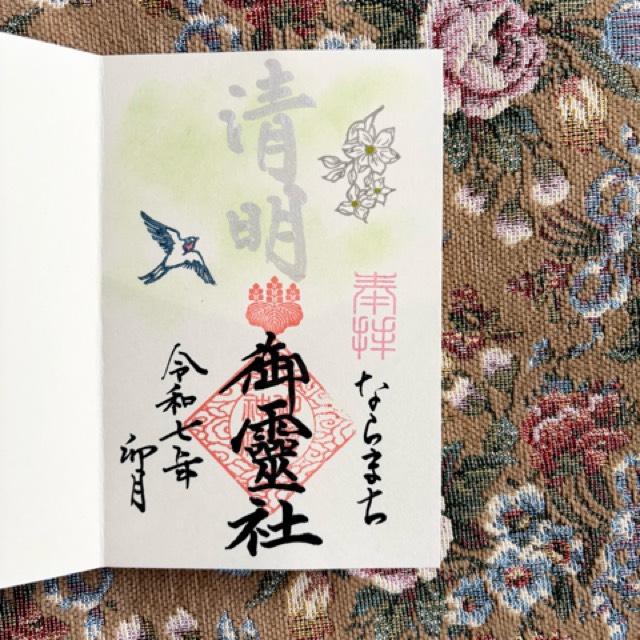 清明
奉拝
ならまち
御靈社
令和七年
卯月